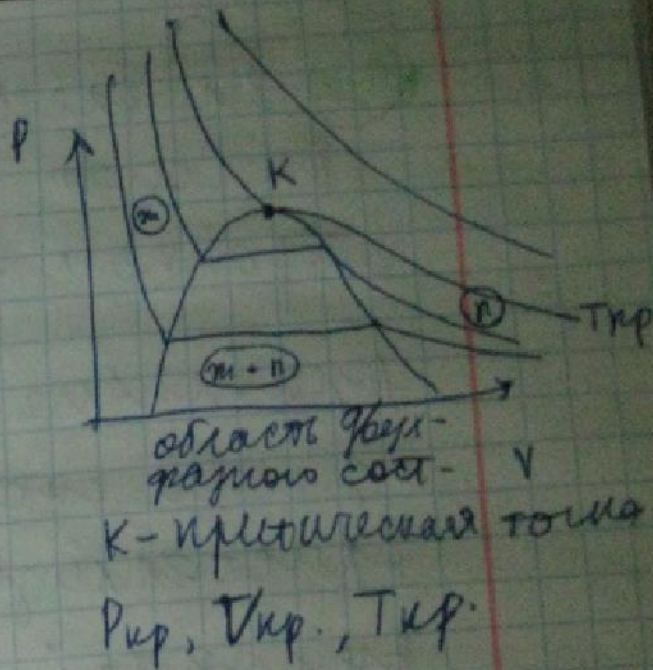 P
K
ж
п
Ткр
ж + п
область двух-
фазного сост-
V
К - критическая точка
Ркр, Vкр., Ткр.